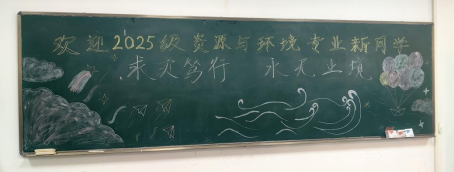 欢迎2025级资源与环境专业新同学
求天笃行 永无止境